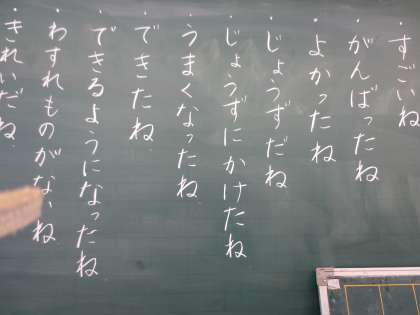 ・すごいね
・がんばったね
・よかったね
・じょうずだね
・じょうずにかけたね
・うまくなったね
・できたね
・できるようになったね
・わすれものがないね
・きれいだね